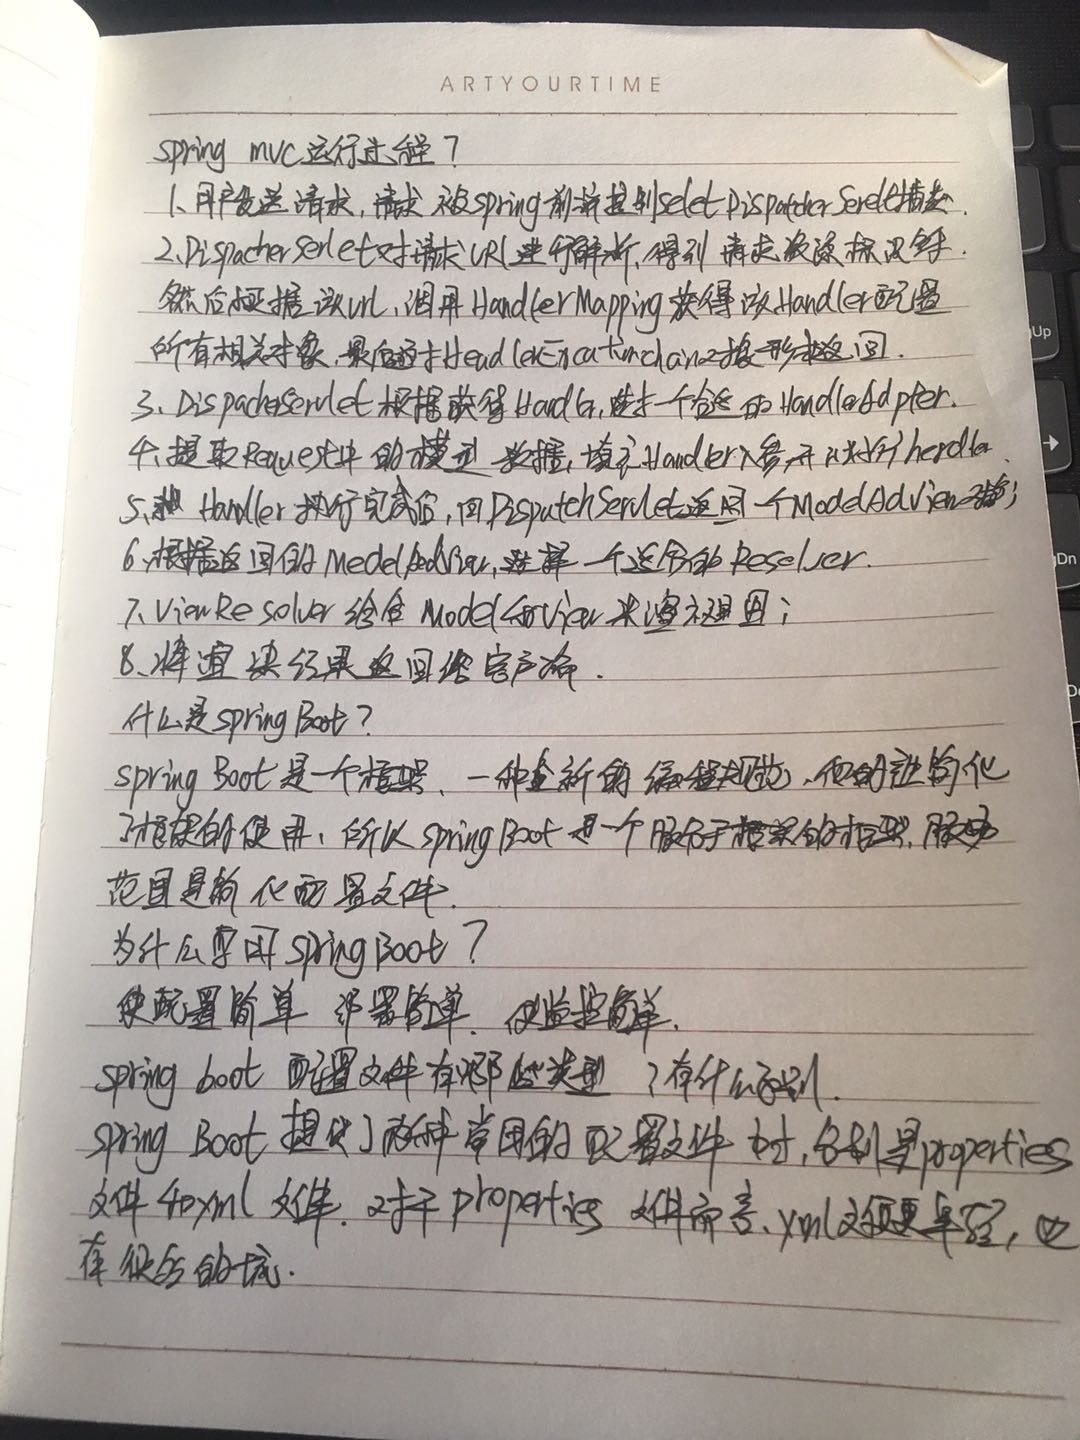 ARTYOURTIME
spring mvc运行流程?
1、用户发送请求,请求被spring前端控制seletDispatcherServlet捕获.
2、DispacherSerlet对请求URL进行解析,得到请求资源标识符.
然后根据该url,调用HandlerMapping获得该Handler配置
所有相关对象,最后通过对象形式返回.
3、DispacherServlet根据获得Handler,选择一个合适的HandlerAdpter.
4、提取Request中的模型数据,填充Handler入参,开始执行
5、Handler执行完成后,向DispatchServlet返回一个ModelAdView对象;
6、根据返回的ModelAndView,选择一个适合的Resolver.
7、ViewResolver结合Model和View来渲染视图;
8、将渲染结果返回给客户端.
什么是spring Boot?
spring Boot是一个框架、一种全新的编程规范、他的 简化
了框架的使用,所以springBoot是一个服务于框架的框架,服务
范围是简化配置文件.
为什么要用springBoot?
使配置简单 部署简单、使监控简单.
spring boot 配置文件有哪些类型?有什么区别.
spring Boot提供了两种常用的配置文件 分别是properties
文件和yml文件.对于properties文件而言、yml文 更年轻,也
有很多的坑.